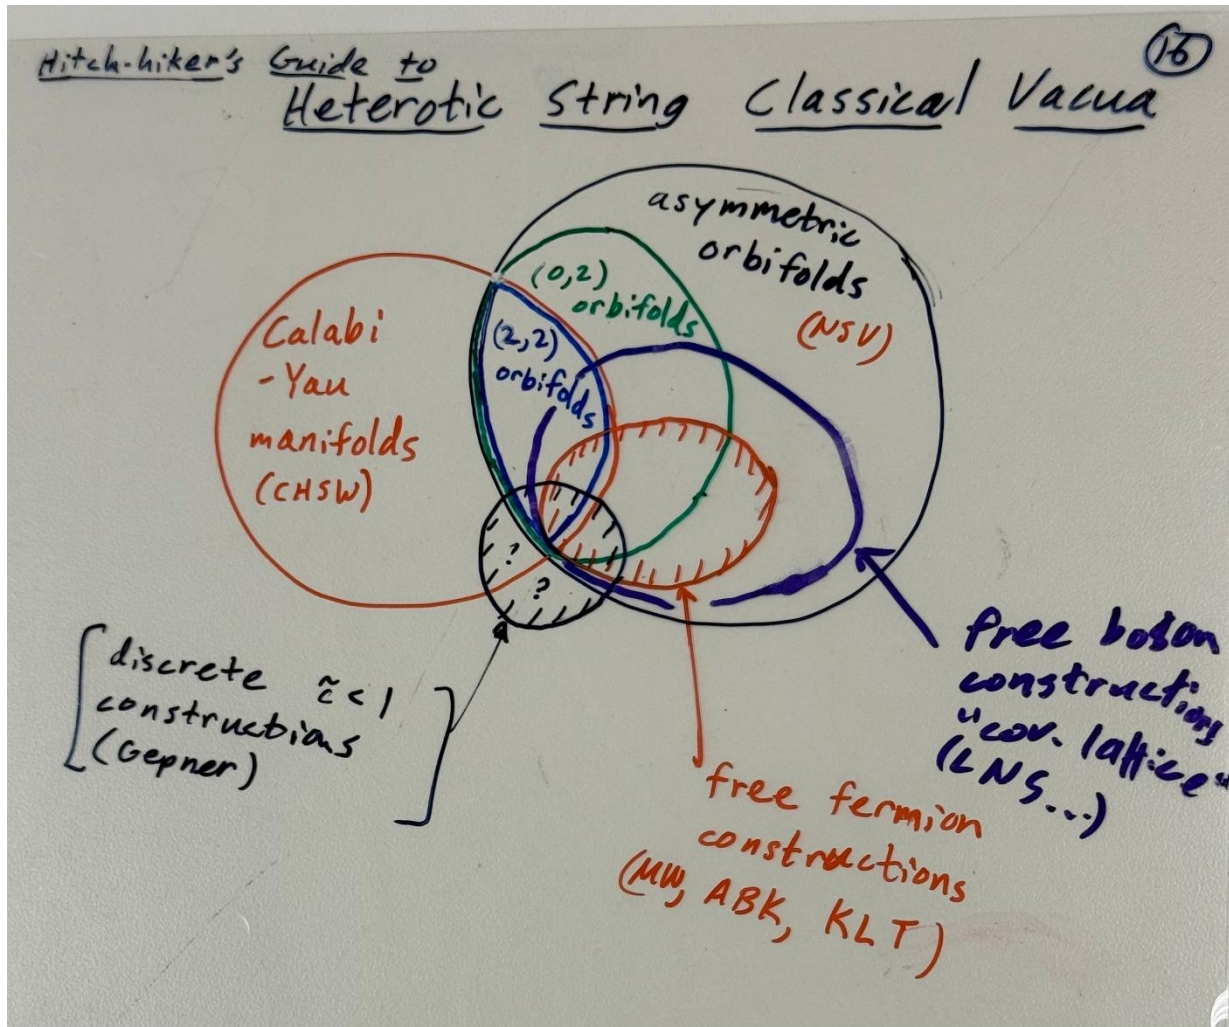 Hitch-hiker's Guide to
16
Heterotic String Classical Vacua
asymmetric
orbifolds
(NSV)
(0,2)
orbifolds
(2,2)
orbifolds
Calabi
-Yau
manifolds
(CHSW)
?
?
discrete c̃ < 1
constructions
(Gepner)
free boson
constructions
"cov. lattice"
(LNS...)
free fermion
constructions
(MW, ABK, KLT)